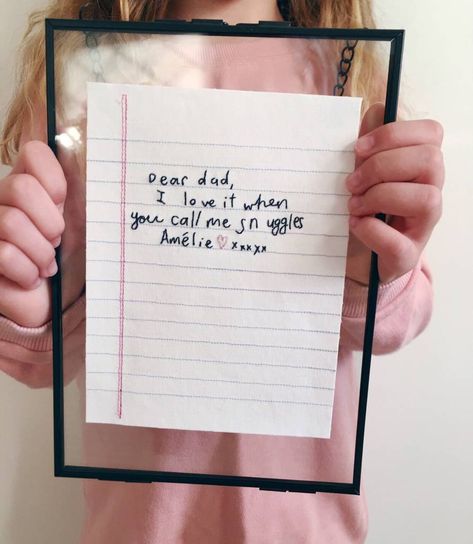 Dear dad,
I love it when
you call me snuggles
Amélie ♡ xxxxx